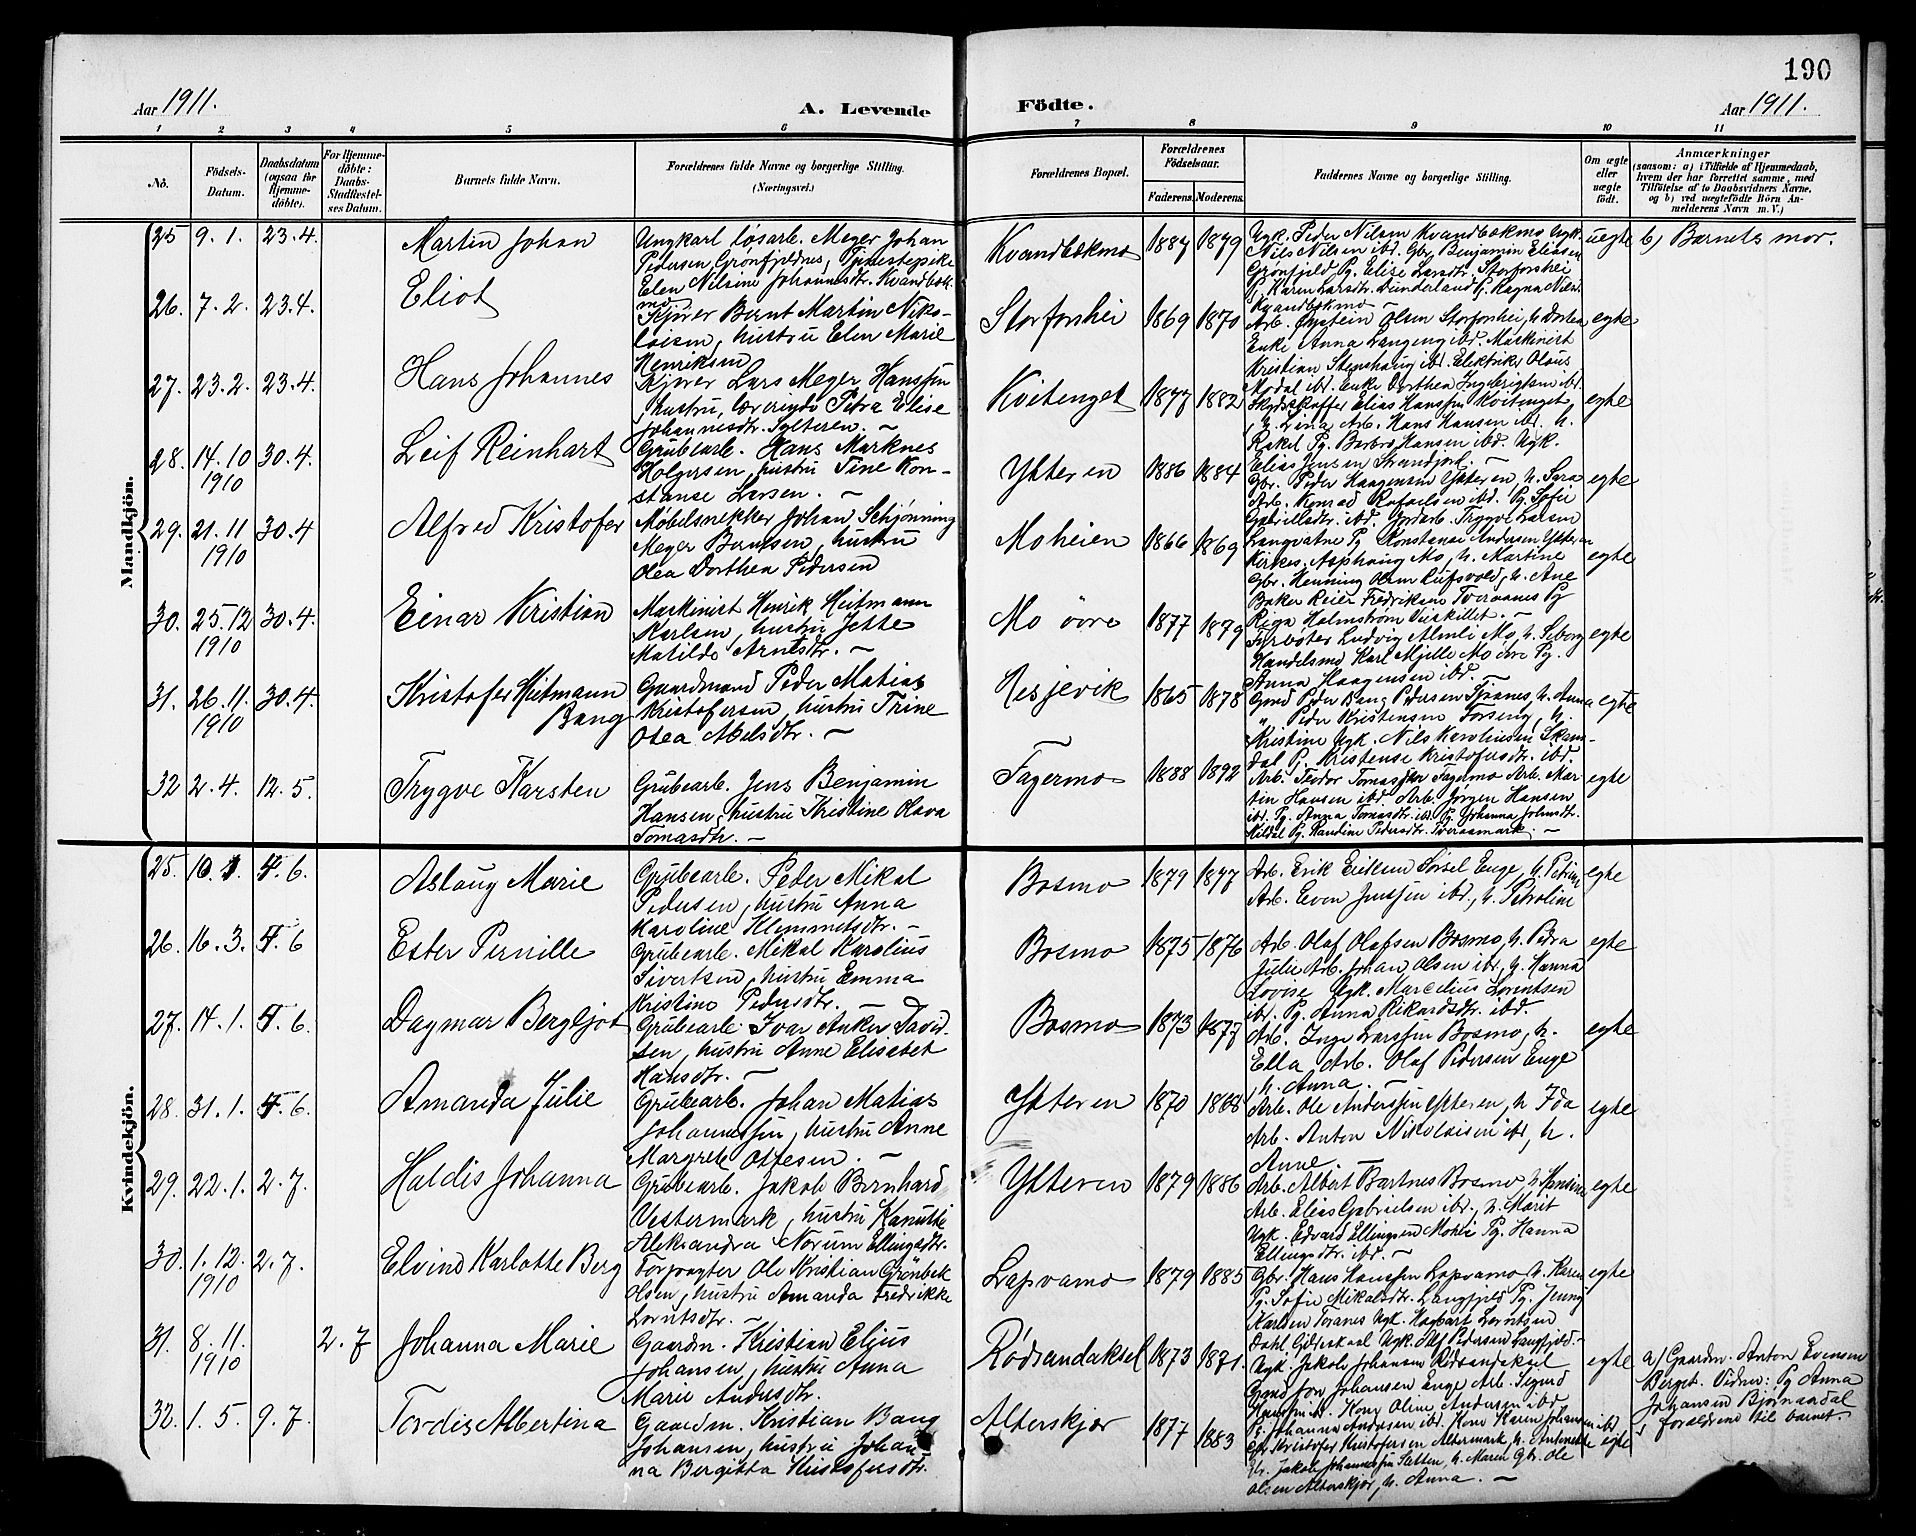 190
Aar 1911.
A. Levende
Födte.
Aar 1911.
1 2 3 4 5 6 7 8 9 10 11
No.
Födsels-Datum.
Daabsdatum (ogsaa for Hjemme-döbte).
For Hjemme-döbte: Daabs-Stadfæstel-ses Datum.
Barnets fulde Navn.
Forældrenes fulde Navne og borgerlige Stilling. (Næringsvei.)
Forældrenes Bopæl.
Forældrenes Födselsaar.
Faderens.
Moderens.
Faddernes Navne og borgerlige Stilling.
Om ægte eller uægte födt.
Anmærkninger
(saasom: a) i Tilfælde af Hjemmedaab, hvem der har forrettet samme, med Tilföielse af to Daabsvidners Navne, og b) ved uægtefödte Börn An-melderens Navn m. V.)
Mandkjön.
25 9. 1. 23. 4. Martin Johan
Ungkarl løsarb. Meyer Johan
Pedersen Grønfjeldnes, Tjenestepike
Elen Nilsine Johannesdtr. Kvandbæk-
mo
Kvandbækmo 1887 1879
Ugk. Peder Nilsen Kvandbækmo Ugk.
Nils Nilsen ibd. Gbr. Benjamin Eliassen
Grønfjeld Pg. Elise Larsdtr. Storforshei
Pg. Karen Larsdtr. Dunderland Pg. Ragna Nilsd.
Kvandbækmo –
uegte b) Barnets mor.
26. 7. 2. 23. 4. Eliot
Kjører Bernt Martin Niko-
laisen, hustru Elen Marie
Henriksen
Storforshei 1869 1870
Arb. Øystein Olsen Storforshei, h. Dortea
Enke Anna Langeng ibd. Maskinist
Kristian Stenshaug ibd. Elektriker Olaus
Modal ibd. Enke Dorthea Ingebrigtsen ibd.
egte
27. 23. 2. 23. 4. Hans Johannes
Kjører Lars Meyer Hanssen
, hustru, lærerinde Petra Elise
Johannesdtr. Ytteren. –
Kvitenget 1877 1882
Skydsskaffer Elias Hanssen Kvitenget
, h. Lina, Arb. Hans Hansen ibd. h.
Rakel Pg. Barbro Hansen ibd. Ugk.
Elias Jensen Strandjord. –
egte
28. 14. 10 1910 30. 4. Leif Reinhart
Grubearb. Hans Marknes
Holgersen, hustru Tine Kon-
stanse Larsen. –
Ytteren 1886 1884
Gbr. Peder Haagensen Ytteren, h. Sara
Arb. Konrad Rafaelsen ibd. Pg. Sofie
Gabrielsdtr. ibd. Jordarb. Trygve Larsen
Langvatne Pg. Konstanse Andersen Ytteren
egte
29. 21. 11 1910 30. 4 Alfred Kristofer
Møbelsnekker Johan Schjønning
Meyer Berntsen, hustru
Olea Dorthea Pedersen
Moheien 1866 1869
Kirkes. Asphaug Mo, h. Martine
Gbr. Henning Olsen Rufsvold, h. Ane
Baker Reier Fredriksen Tveraanes Pg
Riga Holmstrøm Veiskillet. –
egte
30. 25. 12 1910 30. 4. Einar Kristian
Maskinist Henrik Heitmann
Karlsen, hustru Jette
Matilde Arntsdtr. –
Mo övre 1877 1879
Førbøter Ludvig Almli Mo, h. Seborg
Handelsmd Karl Mjelle Mo øvre Pg.
Anna Haagensen ibd. –
egte
31. 26. 11. 1910 30. 4. Kristofer Heitmann
Bang
Gaardmand Peder Matias
Kristofersen, hustru Trine
Olea Abelsdtr. –
Nesjevik 1865 1878
Gmd Peder Bang Pedersen Toranes, h. Anna
" Peder Kristensen Forseng, h.
Kristine Ugk. Nils Karoliusen Skam-
dal Pg. Kristense Kristofersdtr. ibd.
egte
32 2. 4. 12. 5. Trygve Karsten
Grubearb. Jens Benjamin
Hansen, hustru Kristine Olava
Tomasdtr. –
Fagermo 1888 1892
Arb. Teodor Tomassen Fagermo Arb. Mar
tin Hansen ibd. Arb. Jørgen Hansen
ibd. Pg. Anna Tomasdtr. ibd. Pg. Johanna Johnsdtr.
Pg. Randine Pedersdtr. Tveraamark. –
egte
Kvindekjön.
25. 10. 1. 5. 6. Aslaug Marie
Grubearb. Peder Mikal
Pedersen, hustru Anna
Karoline Klemmetsdtr. –
Bosmo 1879 1877
Arb. Erik Eriksen Sørsel Enge, h. Petrine
Arb. Even Jenssen ibd., h. Petroline
egte
26. 16. 3. 5. 6 Ester Pernille
Grubearb. Mikal Karolius
Sivertsen, hustru Emma
Kristine Pedersdtr. –
Bosmo 1875 1876
Arb. Olaf Olafsen Bosmo, h. Petra
Julie Arb. Johan Olsen ibd., h. Hanna
Lovise Ugk. Marcelius Lorentsen
ibd. Pg. Anna Rikardsdtr. ibd.
egte
27. 14. 1. 5. 6. Dagmar Bergljot
Grubearb. Ivar Anker David-
sen, hustru Anne Elisabet
Hansdtr. –
Bosmo 1873 1877
Arb. Inge Larssen Bosmo, h.
Ella Arb. Olaf Pedersen Enge
, h. Anna. –
egte
28. 31. 1. 5. 6. Amanda Julie
Grubearb. Johan Matias
Johannessen, hustru Anne
Margrete Ottesen. –
Ytteren 1870 1868
Arb. Ole Anderssen Ytteren, h Ida
Arb. Anton Nikolaisen ibd, h.
Anne –
egte
29. 22. 1. 2. 7. Haldis Johanna
Grubearb. Jakob Bernhard
Vestermark, hustru Kanutte
Aleksandra Norum Ellingsdtr.
Ytteren 1879 1886
Arb. Albert Bartnes Bosmo h. Hansine
Arb. Elias Gabrielsen ibd., h. Marit
Ugk. Edvard Ellingsen Mohei Pg. Hanna
Ellingsdtr. ibd. –
egte
30. 1. 12. 1910 2. 7. Elvine Karlotte Berg
Forpagter Ole Kristian Grønbek
Olsen, hustru Amanda Fredrikke
Lorntsdtr. –
Lapvamo 1879 1885
Gbr. Hans Hanssen Lapvamo, h. Karen
Pg. Sofie Mikalsdtr. Langfjeld Pg. Jenny
Karlsen Toranes Ugk. Hagbart Lorntsen
Dahl Gildeskaal Ugk. Olaf Pedersen Langfjeld –
egte
31. 8. 11. 1910 2. 7 Johanna Marie
Gaardm. Kristian Eljus
Johansen, hustru Anna
Marie Andersdtr.
Rødsandaksel 1873 1871.
Ugk. Jakob Johansen Rødsandaksel
Gmd Jon Johansen Enge Arb. Sigurd
Kone Oline Andersen ibd
Pg. Johanna Andersen ibd. Kone Karen Johansen ibd
egte
a) Gaardm. Anton Evensen
Berget. Vidner: Pg Anna
Johansen Bjørnaadal
forældrene til barnet.
32. 1. 5. 9. 7. Tordis Albertina
Gaardm. Kristian Bang
Johansen, hustru Johan-
na Bergitta Kristofersdtr.
Alterskjær 1877 1883
Gbr. Kristofer Kristofersen Altermark, h. Antonette
Gbr. Jakob Johannessen Sletten, h. Maren Gbr. Ole
Olsen Alterskjær, h. Anna. –
egte